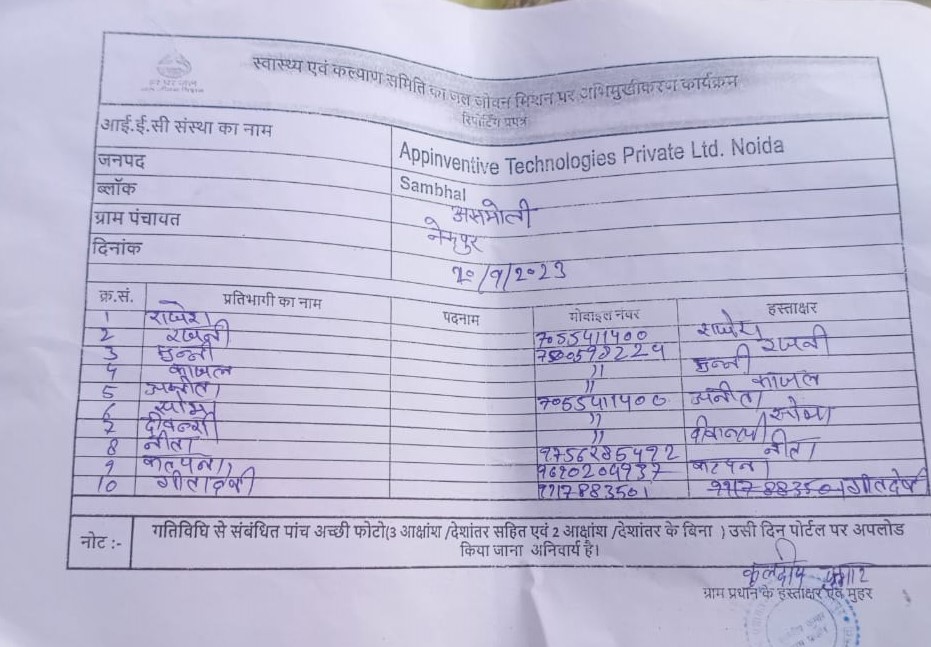 हर घर जल
जल जीवन मिशन
स्वास्थ्य एवं कल्याण समिति का जल जीवन मिशन पर अभिमुखीकरण कार्यक्रम
रिपोर्टिंग प्रपत्र
आई.ई.सी संस्था का नाम Appinventive Technologies Private Ltd. Noida
जनपद Sambhal
ब्लॉक असमोली
ग्राम पंचायत
दिनांक 20/9/2023
क्र.सं. प्रतिभागी का नाम पदनाम मोबाइल नंबर हस्ताक्षर
1 राजेश 7055411400 राजेश
2 रजनी रजनी
3 मुन्नी " मुन्नी
4 काजल " काजल
5 अनीता 7055411400 अनीता
6 "
7 "
8 नीता 9756285492 नीता
9 कल्पना कल्पना
10 गीतादेवी 9917883501 9917883501 गीतादेवी
नोट :- गतिविधि से संबंधित पांच अच्छी फोटो(3 आक्षांश /देशांतर सहित एवं 2 आक्षांश /देशांतर के बिना ) उसी दिन पोर्टल पर अपलोड
किया जाना अनिवार्य है।
कुलदीप कुमार
ग्राम प्रधान के हस्ताक्षर एवं मुहर